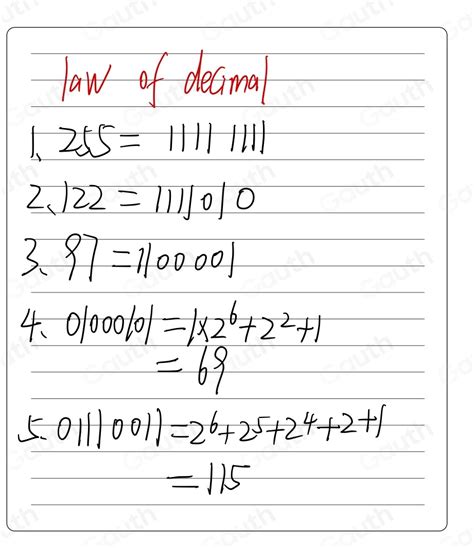 law of decimal
1、255=1111 1111
2、122=1111010
3、97=1100001
4、01000101=1×2⁶+2²+1
=69
5.01110011=2⁶+2⁵+2⁴+2+1
=115